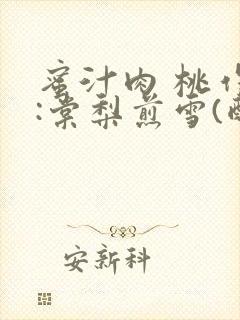 蜜汁肉桃作
:棠梨煎雪(
安新科